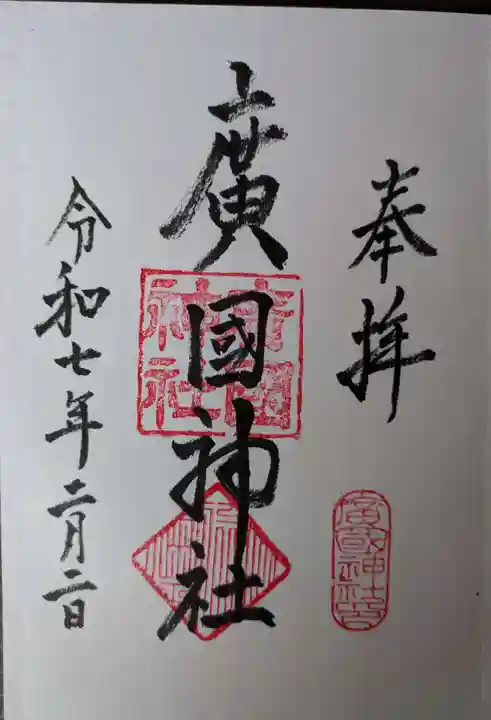 奉拝
廣國神社
令和七年二月二日